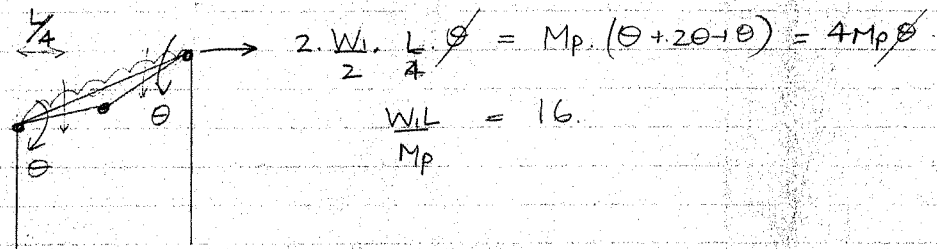 L/4
2. W₁/2 . L/4 . θ = Mp. (θ + 2θ + θ) = 4Mp θ
θ
θ
W₁L/Mp = 16.